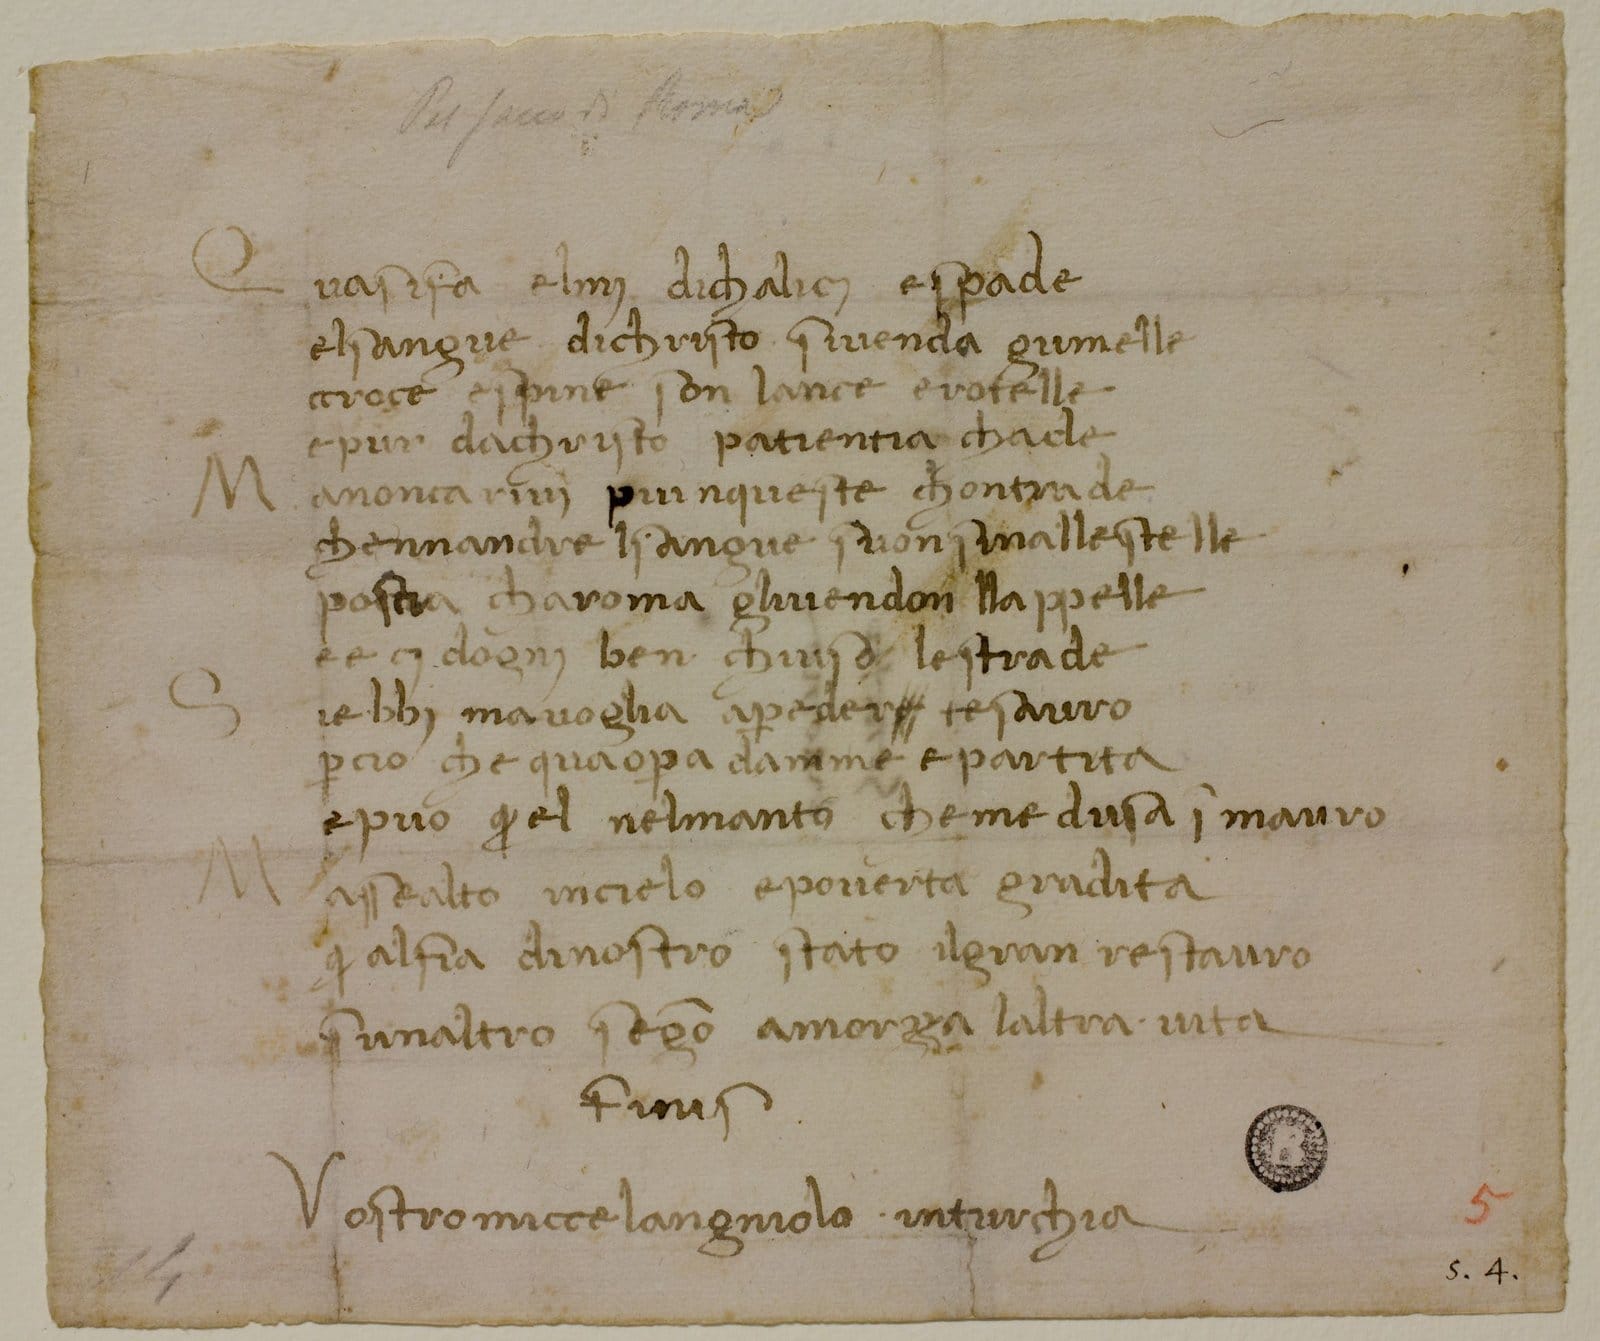 Pel sacco di Roma
Qua sisfa elmj dichalicj espade
elsangue dichristo siuenda giumelle
croce espine son lance erotelle
epur dachristo patientia chade
Manoncarivj piunqueste chontrade
chennandre lsangue suonsinallestelle
poscia charoma gliuendon llappelle
ee cj dognj ben chiuso lestrade
Siebbj mauoglia aperder tesauro
pcio che quaopa damme epartita
epuo quel nelmanto che medusa ī mauro
Massealto incielo epouerta gradita
qual fia dinostro stato ilgran restauro
sunaltro segno amorza laltra uita
finis
Vostromiccelangniolo inturchia
5
s. 4.